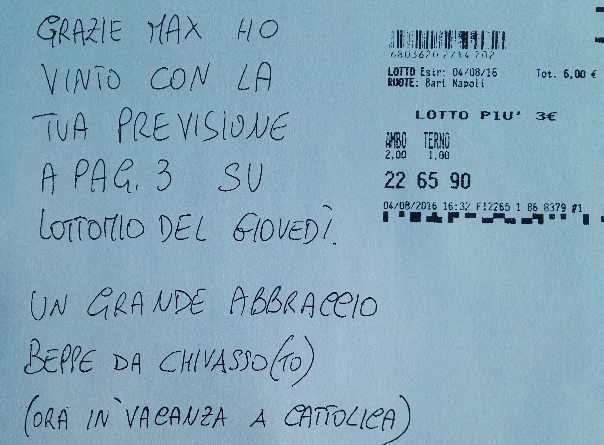 GRAZIE MAX HO
VINTO CON LA
TUA PREVISIONE
A PAG. 3 SU
LOTTOMIO DEL GIOVEDÌ.
UN GRANDE ABBRACCIO
BEPPE DA CHIVASSO (TO)
(ORA IN VACANZA A CATTOLICA)
6803620 2714 202
LOTTO Estr: 04/08/16 Tot. 6,00 €
RUOTE: Bari Napoli
LOTTO PIU' 3€
AMBO TERNO
2,00 1,00
22 65 90
04/08/2016 16:32 F12265 1 86 8379 #1